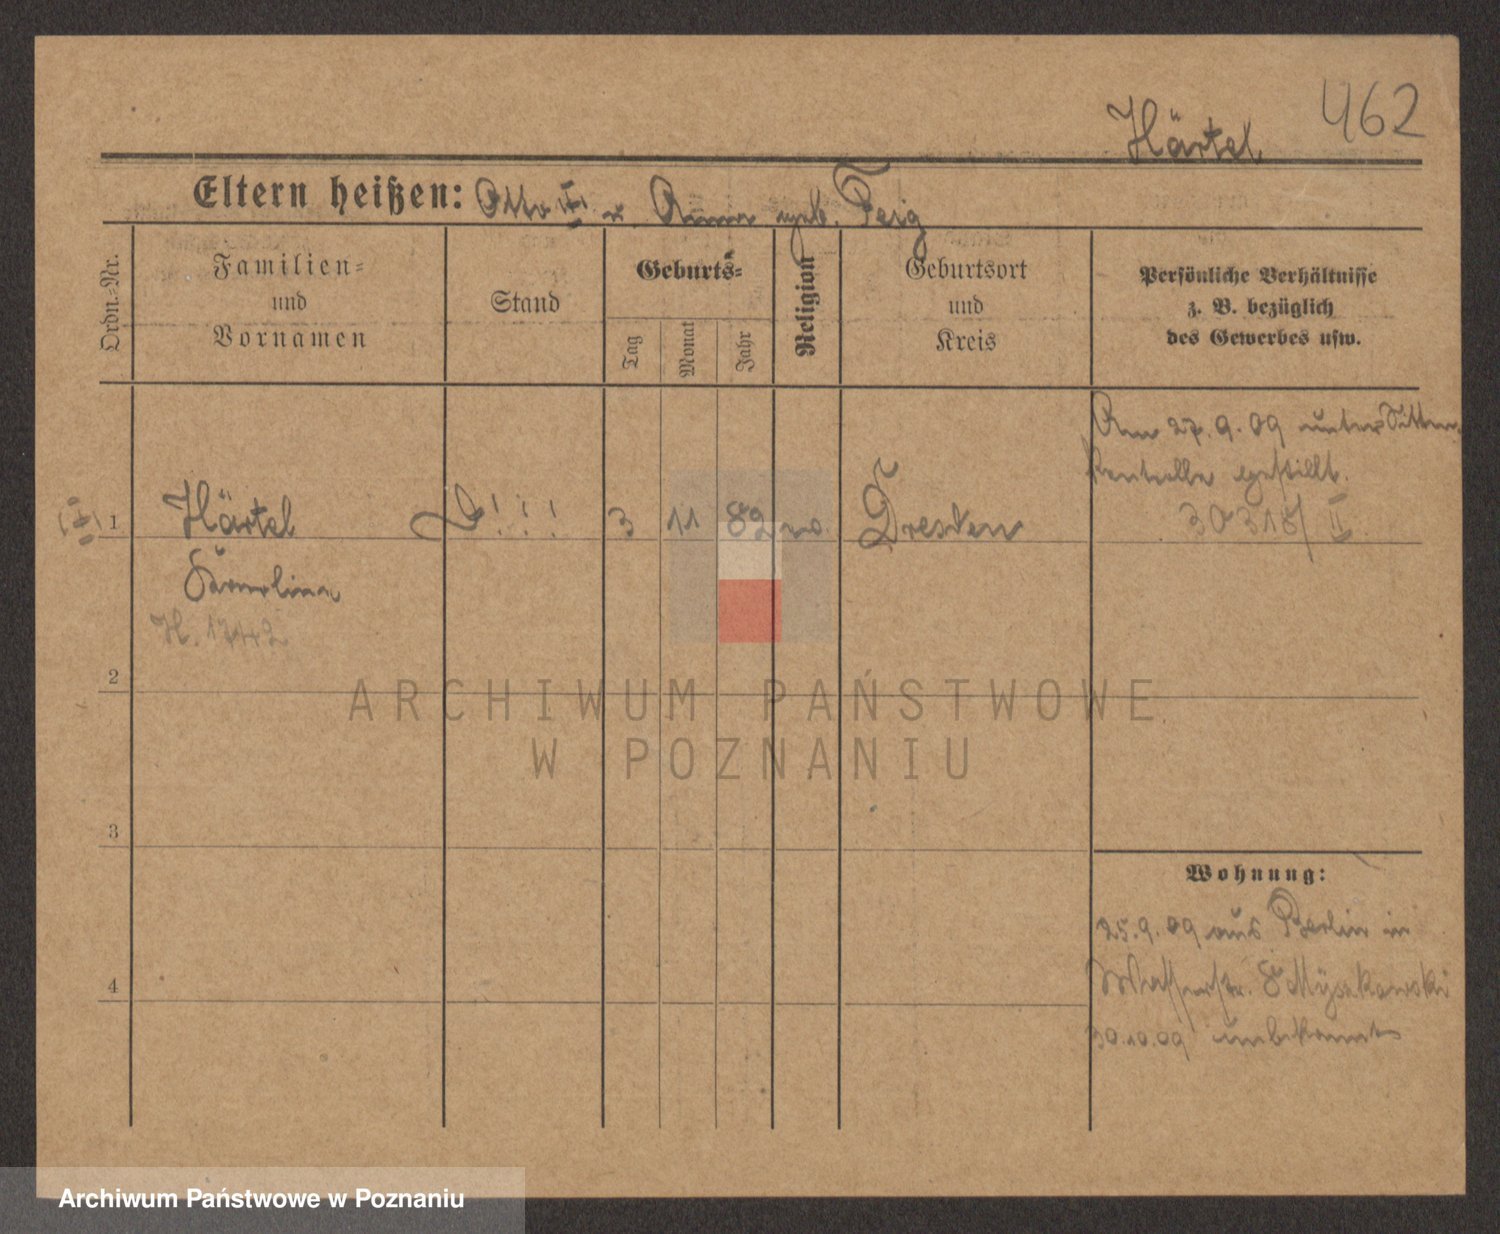 462
Härtel
Eltern heißen: Otto u. Anna geb. Feig
Ordn.-Nr.
Familien-
und
Vornamen
Stand
Geburts-
Tag
Monat
Jahr
Religion
Geburtsort
und
Kreis
Persönliche Verhältnisse
z. B. bezüglich
des Gewerbes usw.
Am 27.9.09 unter Sitten-
kontrolle gestellt.
30318/II
1
Härtel
!!!
3
11
82
Dresden
H. 17442
2
ARCHIWUM PAŃSTWOWE
W POZNANIU
3
4
Wohnung:
25.9.09 aus Berlin in
Wasserstr. 8
30.10.09 unbekannt
Archiwum Państwowe w Poznaniu